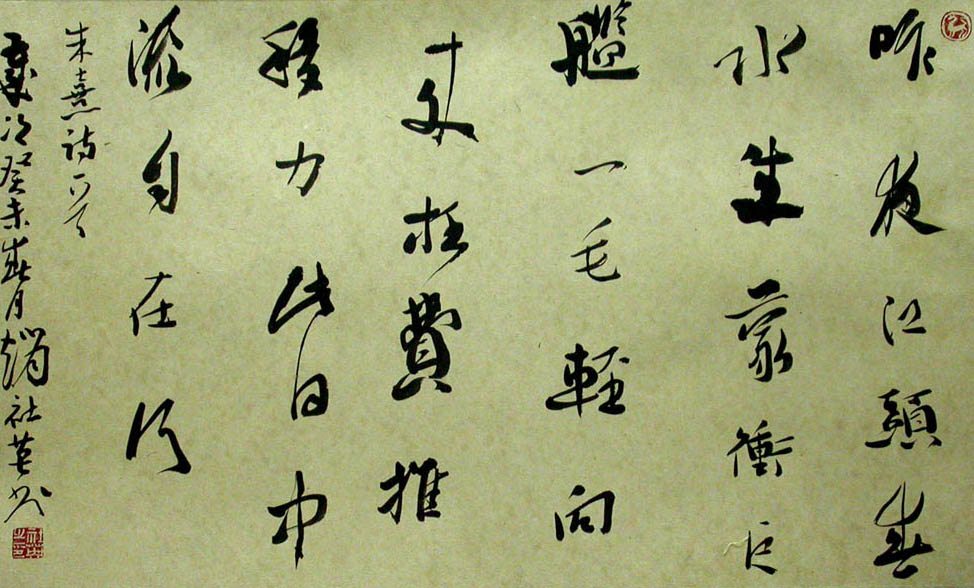 昨夜江頭春
水生蒙衝巨
艦一毛輕向
来枉費推
移力此日中
流自在行
朱熹詩一首
歲次癸未春月趙社英書